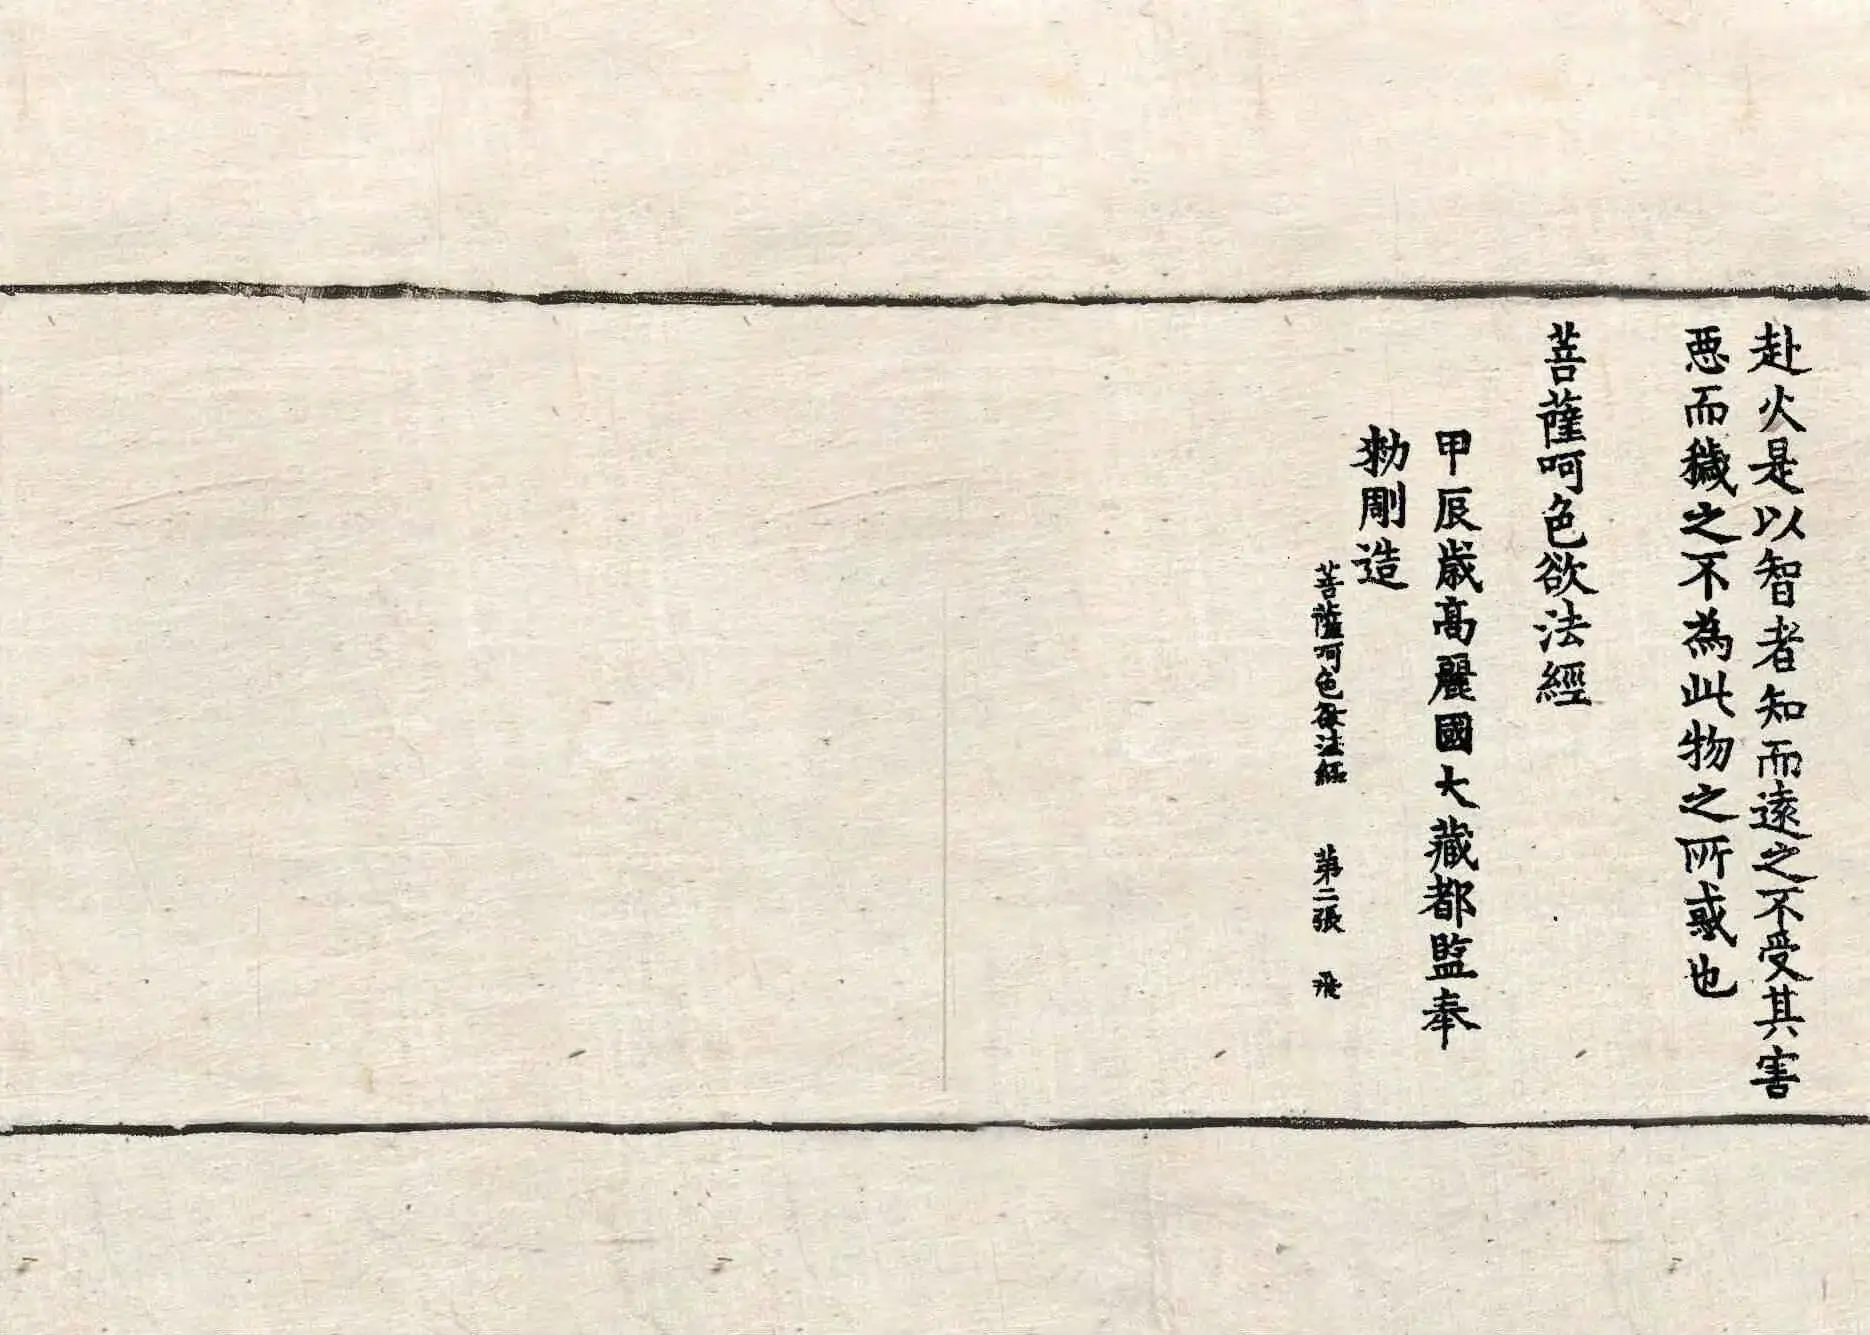 赴火是以智者知而遠之不受其害
惡而穢之不為此物之所惑也
菩薩呵色欲法經
甲辰歲高麗國大藏都監奉
勅彫造
菩薩呵色欲法經 第二張 飛